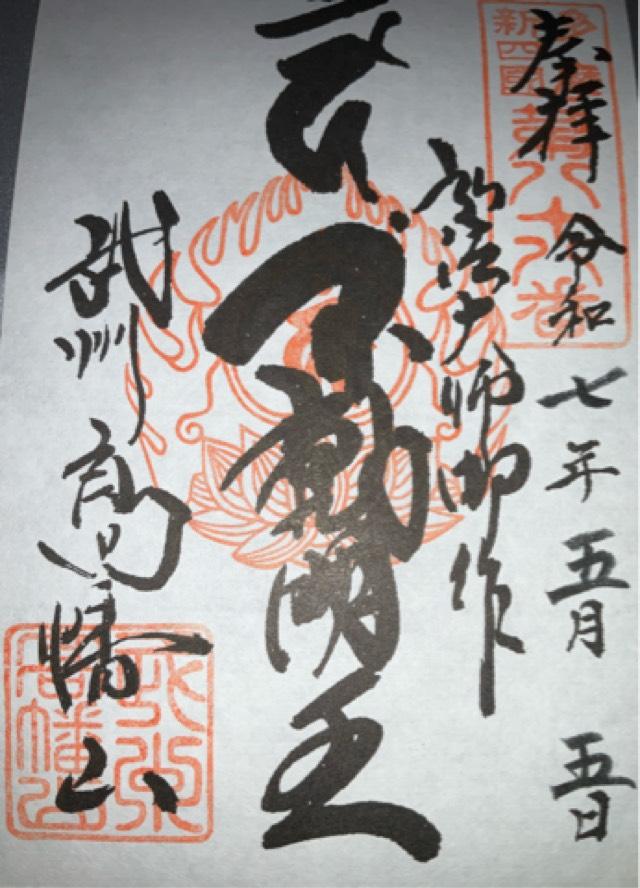 奉拝 令和七年五月五日
多摩
新四国
第八十八番
弘法大師御作
不動明王
武州 高幡山
武州
高幡山